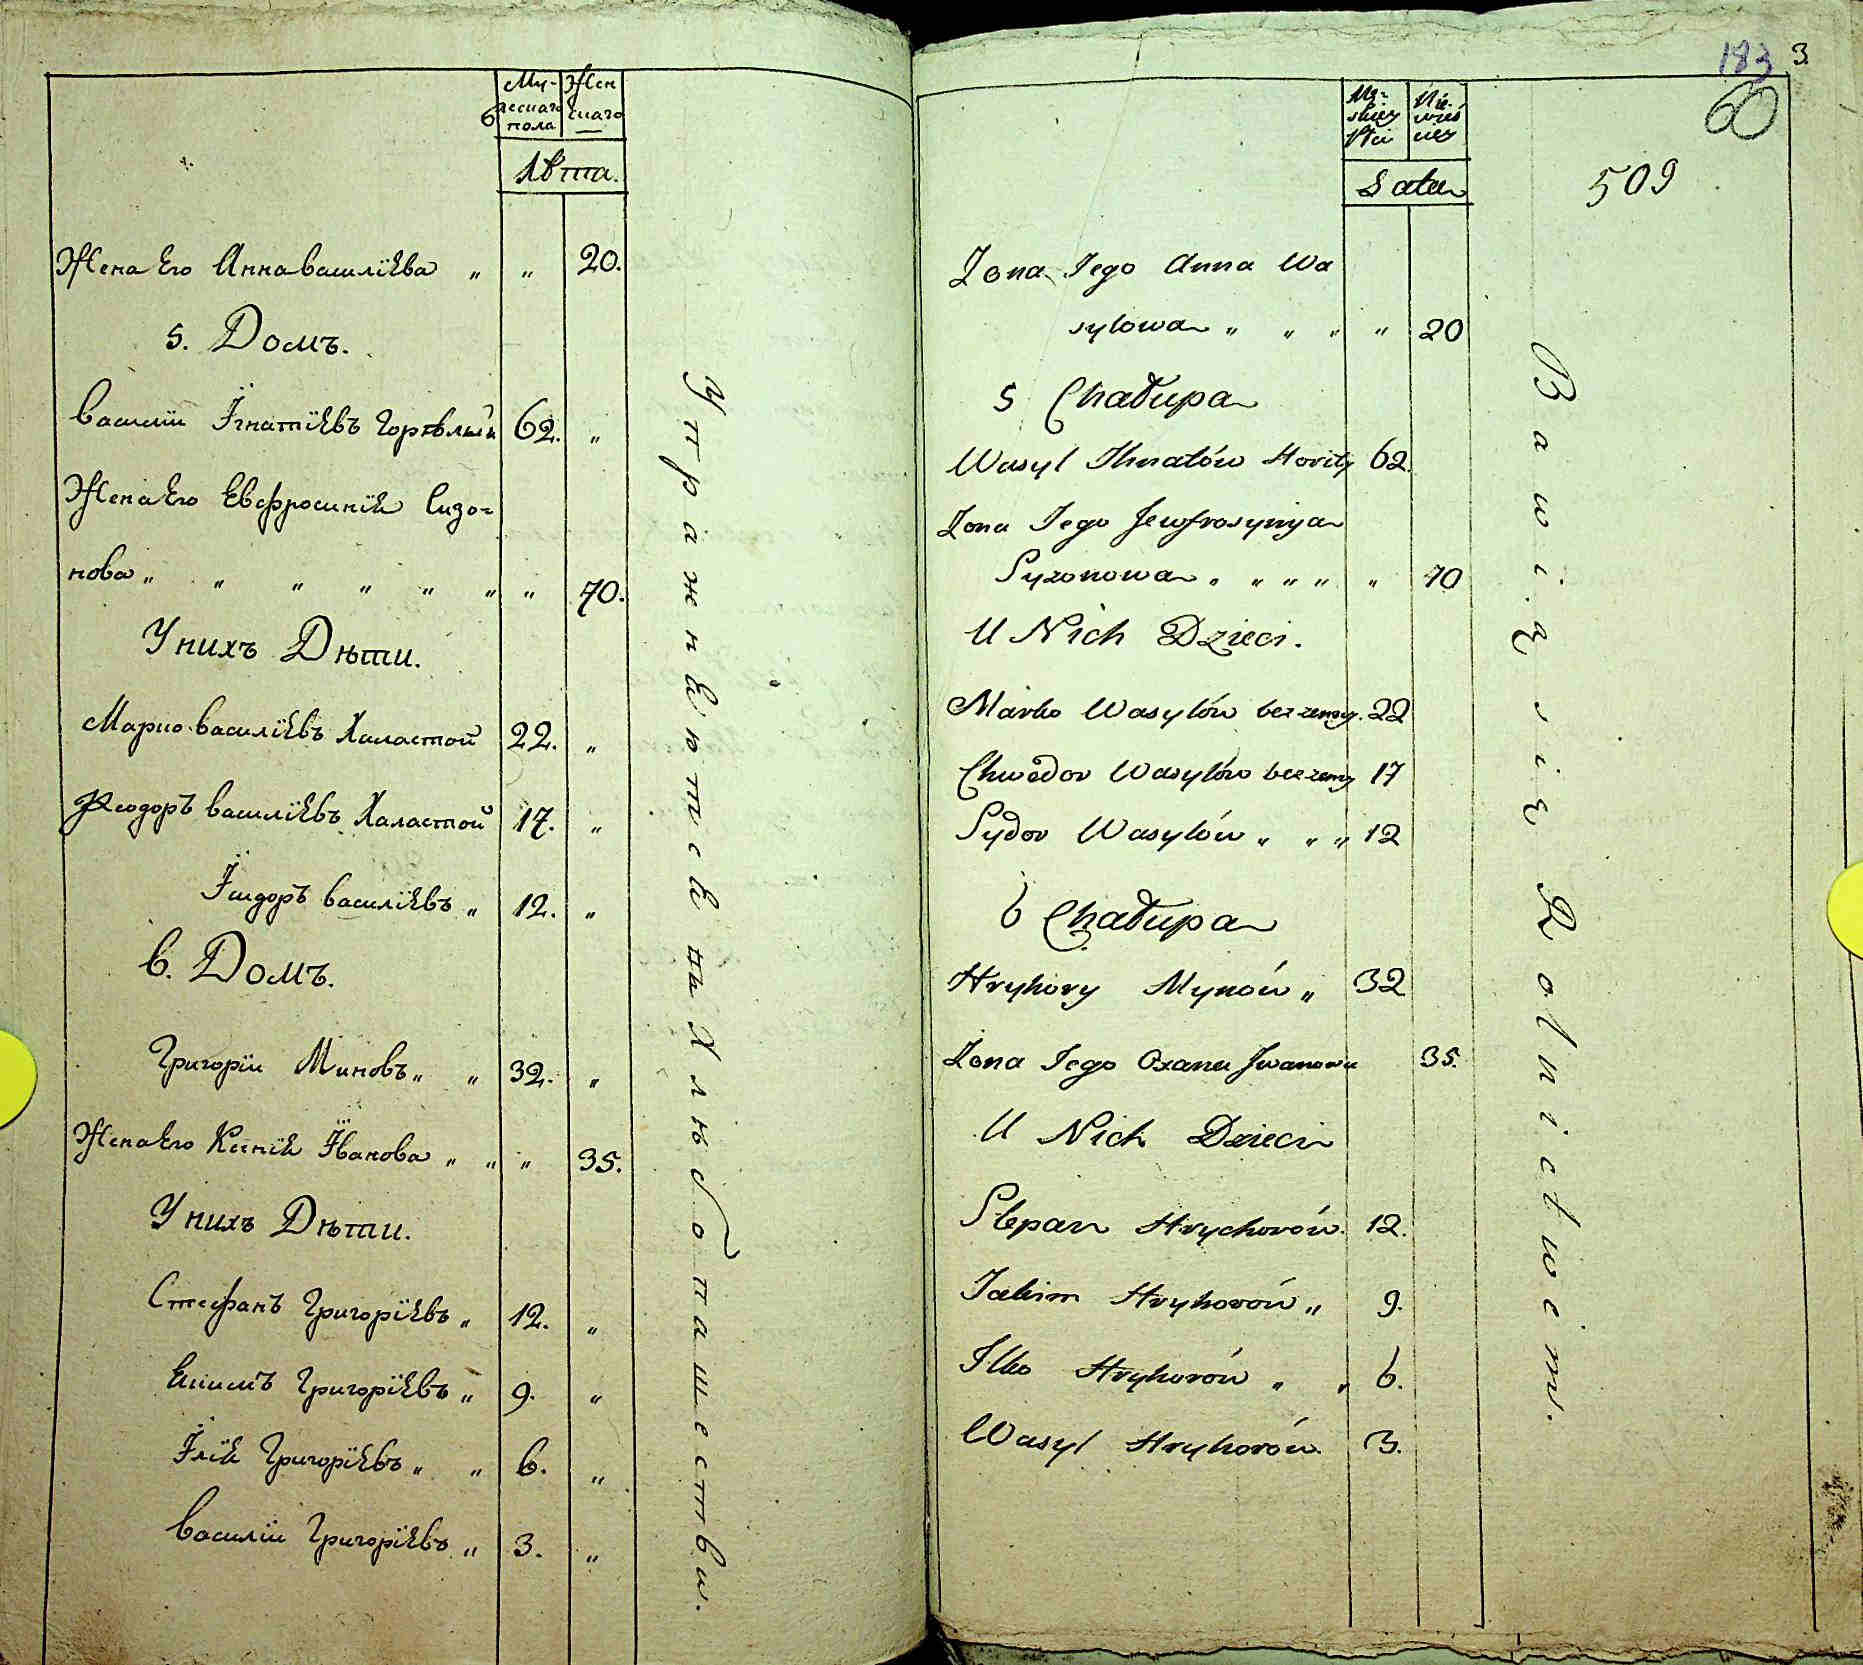 Мужескаго пола
Женскаго
Лѣта.
Жена Его Анна Василіева " " 20.
5. Домъ.
Василіи Ігнатіевъ Горѣлыи 62. "
Жена Его Евфросинія Сизо=
нова " " " " " " " 70.
У нихъ Дѣти.
Марко Василіевъ Халастой 22. "
Ѳеодоръ Василіевъ Халастой 17. "
Ісидоръ Василіевъ " 12. "
6. Домъ.
Григоріи Миновъ " " 32. "
Жена Его Ксенія Іванова " " " 35.
У нихъ Дѣти.
Стефанъ Григоріевъ " 12. "
Екимъ Григоріевъ " 9. "
Ілія Григоріевъ " " 6. "
Василіи Григоріевъ " 3. "
Упражняются въ Хлѣбопашествѣ.
183 3
60
509
Męskiey Płci
Lata
Zona Iego Anna Wa
sylowa " " " " 20
5 Chałupa
Wasyl Ihnatów 62.
Zona Iego Jewfrosynya
Syzonowa " " " " " 70
U Nich Dzieci.
Marko Wasylów bezzenny. 22
Chwedor Wasylów bezzenny 17
Sydor Wasylów " " " 12
6 Chałupa
Hryhory Mynów " 32
Zona Iego Oxana Jwanowa 35.
U Nich Dzieci
Stepan Hrychorów. 12.
Iakim Hryhorów " 9.
Ilko Hryhorów " " 6.
Wasyl Hryhorów. 3.
Bawią się Rolnictwem.